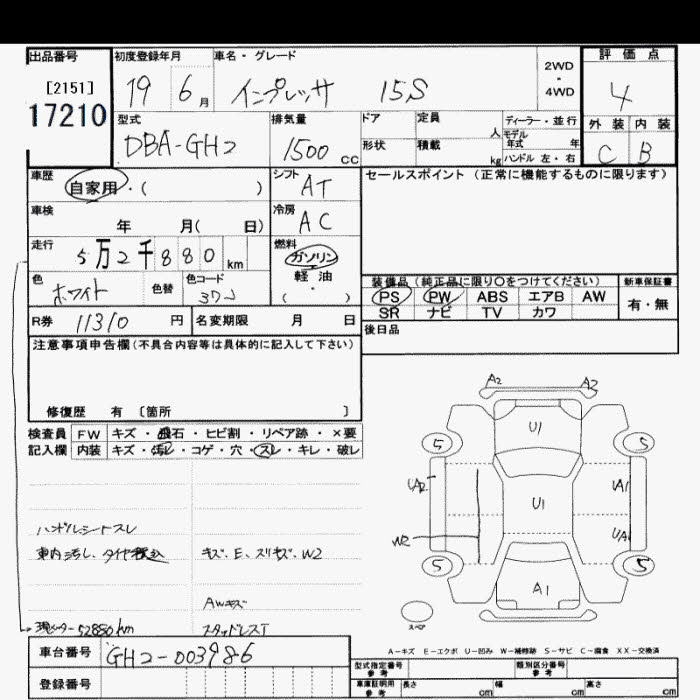 出品番号 初度登録年月 車名・グレード 2WD・4WD 評価点
[2151] 19 6月 インプレッサ 15S 4
17210
型式 排気量 ドア 定員 人 ディーラー・並行 外装 内装
DBA-GH2 1500cc 形状 積載 kg モデル年式 年 C B
ハンドル 左・右
車歴 自家用・( ) シフト AT セールスポイント (正常に機能するものに限ります)
車検 年 月( 日) 冷房 AC
走行 5万2千880km 燃料 ガソリン
軽油
( ・ )
色 ホワイト 色替 色コード 37J
装備品 (純正品に限り○をつけてください) 新車保証書
PS PW ABS エアB AW 有・無
SR ナビ TV カワ
R券 11310円 名変期限 月 日 後日品
注意事項申告欄(不具合内容等は具体的に記入して下さい)
修復歴 有 〔箇所 〕
検査員 FW キズ・飛石・ヒビ割・リペア跡・×要
記入欄 内装 キズ・汚れ・コゲ・穴・スレ・キレ・破レ
A2 A2
U1
5 5
UA2 UA1
U1
W2 UA1
5 5
A1
スペア
ハンドルシートスレ
車内汚し、タイヤ積込 キズ、E、スリキズ、W2
AWキズ
現メーター52880km スタッドレスT
A-キズ E-エクボ U-凹み W-補修跡 S-サビ C-腐食 XX-交換済
車台番号 GH2-003986
型式指定番号 参考 類別区分番号 参考
登録番号
車庫証明用 参考 長さ cm 幅 cm 高さ cm